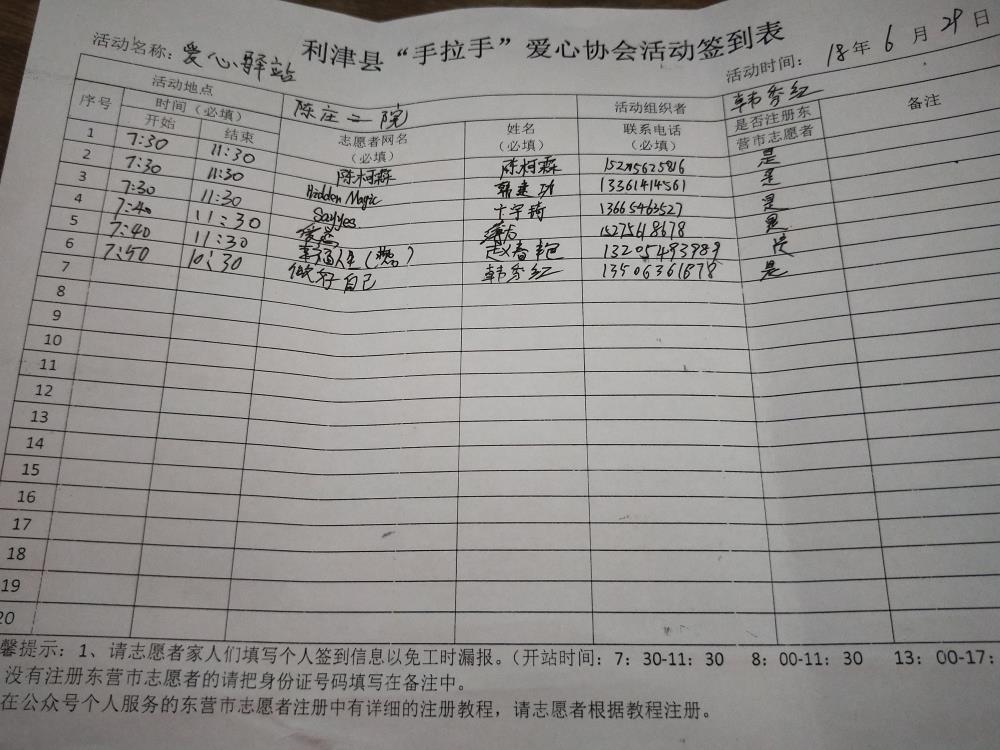 利津县“手拉手”爱心协会活动签到表
活动名称：爱心驿站 活动时间：18年6月29日
活动地点 陈庄二院 活动组织者 韩秀红 备注
序号 时间（必填） 志愿者网名（必填） 姓名（必填） 联系电话（必填） 是否注册东营市志愿者
开始 结束
1 7:30 11:30 陈柯霖 陈柯霖 是
2 7:30 11:30 Hidden Magic 韩建功 13361414561 是
3 7:30 11:30 Sayyes 13665463527 是
4 7:40 11:30 15275618678 是
5 7:40 11:30 幸福人生 赵春艳 13205493989
6 7:50 10:30 做好自己 韩秀红 13506361878 是
7
8
9
10
11
12
13
14
15
16
17
18
19
20
馨提示：1、请志愿者家人们填写个人签到信息以免工时漏报。（开站时间：7：30-11：30 8：00-11：30 13：00-17：
没有注册东营市志愿者的请把身份证号码填写在备注中。
在公众号个人服务的东营市志愿者注册中有详细的注册教程，请志愿者根据教程注册。